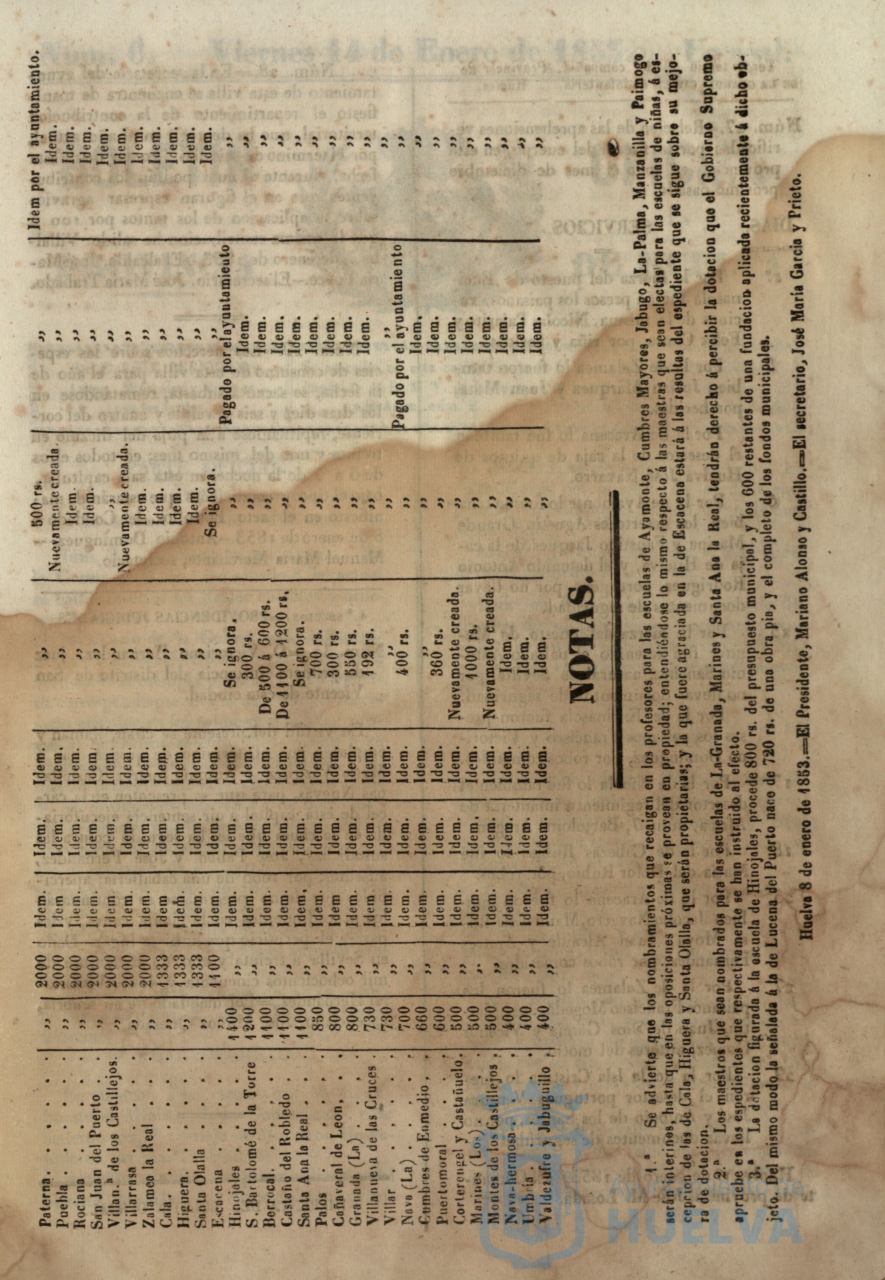 Paterna. . . . . . ,, 2000 Idem. Idem. Idem. ,, 500 rs. ,, Idem por el ayuntamiento.
Puebla . . . . . . ,, 2000 Idem Idem. Idem. ,, Nuevamente creada. ,, Idem.
Rociana . . . . . ,, 2000 Idem. Idem. Idem. ,, Idem. ,, Idem.
San Juan del Puerto . . ,, 2000 Idem Idem. Idem. ,, Idem. ,, Idem.
Villan.ª de los Castillejos. ,, 2000 Idem. Idem. Idem. ,, ,, ,, Idem.
Villarrasa . . . . . ,, 2000 Idem. Idem. Idem. ,, Nuevamente creada. ,, Idem.
Zalamea la Real . . . ,, 2000 Idem. Idem. Idem. ,, Idem. ,, Idem.
Cala. . . . . . . ,, 1333 Idem Idem. Idem. ,, Idem. ,, Idem.
Higuera. . . . . . ,, 1333 Idem. Idem. Idem. ,, Idem. ,, Idem.
Santa Olalla . . . . ,, 1333 Idem. Idem. Idem. ,, Idem. ,, Idem.
Escacena . . . . . ,, 1100 Idem. Idem. Idem. ,, Se ignora. ,, Idem.
Hinojales . . . . . 1400 ,, Idem. Idem. Idem. Se ignora. ,, Pagado por el ayuntamiento ,,
S. Bartolomé de la Torre 1200 ,, Idem. Idem. Idem. 300 rs. ,, Idem. ,,
Berrocal. . . . . . 1100 ,, Idem. Idem. Idem. De 500 á 600 rs. ,, Idem. ,,
Castaño del Robledo . . 1100 ,, Idem. Idem. Idem. De 1100 á 1200 rs. ,, Idem. ,,
Santa Ana la Real . . . 1100 ,, Idem. Idem. Idem. Se ignora. ,, Idem. ,,
Palos . . . . . . 850 ,, Idem. Idem. Idem. 700 rs. ,, Idem. ,,
Cañaveral de Leon. . . 800 ,, Idem Idem. Idem. 300 rs. ,, Idem. ,,
Granada (La) . . . . 800 ,, Idem. Idem. Idem. 550 rs. ,, Idem. ,,
Villanueva de las Cruces . 730 ,, Idem Idem. Idem. 192 rs. ,, Idem. ,,
Villar . . . . . . 730 ,, Idem. Idem. Idem. ,, ,, ,, ,,
Nava (La) . . . . . 700 ,, Idem. Idem. Idem. 400 rs. ,, Pagado por el ayuntamiento ,,
Cumbres de Enmedio . . 660 ,, Idem. Idem. Idem. ,, ,, Idem. ,,
Puertomoral . . . . 600 ,, Idem. Idem. Idem. 360 rs. ,, Idem. ,,
Corterengel y Castañuelo. 500 ,, Idem. Idem. Idem. Nuevamente creada. ,, Idem. ,,
Marines (Los) . . . . 500 ,, Idem. Idem. Idem. 1000 rs. ,, Idem. ,,
Montes de los Castillejos . 500 ,, Idem. Idem. Idem. Nuevamente creada. ,, Idem. ,,
Nava-hermosa . . . . 400 ,, Idem. Idem. Idem. Idem. ,, Idem. ,,
Umbria . . . . . . 400 ,, Idem. Idem. Idem. Idem. ,, Idem. ,,
Valdezufre y Jabuguillo . 400 ,, Idem. Idem. Idem. Idem. ,, Idem. ,,
NOTAS.
1.ª Se advierte que los nombramientos que recaigan en los profesores para las escuelas de Ayamonte, Cumbres Mayores, Jabugo, La-Palma, Manzanilla y Paimogo
serán interinos, hasta que en las oposiciones próximas se provean en propiedad; entendiéndose lo mismo respecto á las maestras que sean electas para las escuelas de niñas, á es-
cepcion de las de Cala, Higuera y Santa Olalla, que serán propietarias; y la que fuere agraciada en la de Escacena estará á las resultas del espediente que se sigue sobre su mejo-
ra de dotacion.
2.ª Los maestros que sean nombrados para las escuelas de La-Granada, Marines y Santa Ana la Real, tendrán derecho á percibir la dotacion que el Gobierno Supremo
apruebe en los espedientes que respectivamente se han instruido al efecto.
3.ª La dotacion figurada á la escuela de Hinojales, procede 800 rs. del presupuesto municipal, y los 600 restantes de una fundacion aplicada recientemente á dicho ob-
jeto. Del mismo modo la señalada á la de Lucena del Puerto nace de 720 rs. de una obra pia, y el completo de los fondos municipales.
Huelva 8 de enero de 1853.—El Presidente, Mariano Alonso y Castillo.—El secretario, José Maria Garcia y Prieto.
HUELVA